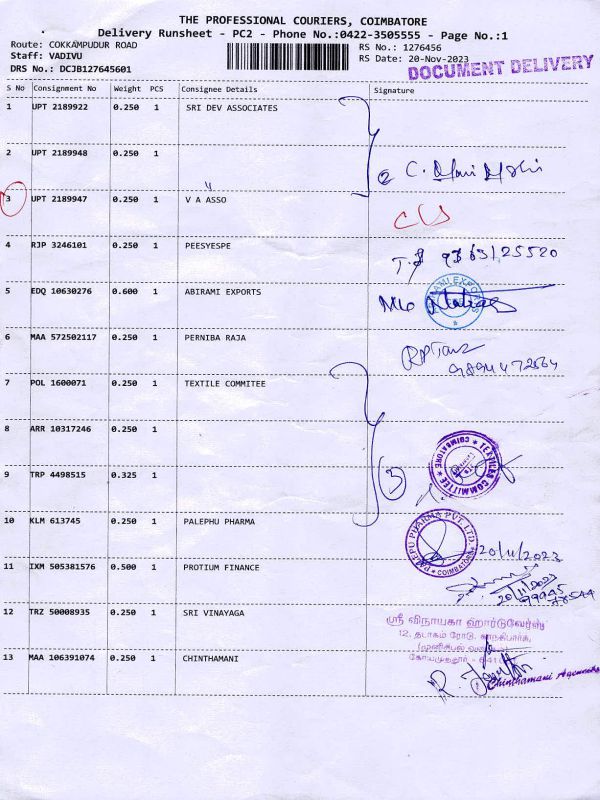 THE PROFESSIONAL COURIERS, COIMBATORE
Delivery Runsheet - PC2 - Phone No.:0422-3505555 - Page No.:1
Route: COKKAMPUDUR ROAD
RS No.: 1276456
Staff: VADIVU
RS Date: 20-Nov-2023
DRS No.: DCJB127645601
DOCUMENT DELIVERY
S No Consignment No Weight PCS Consignee Details Signature
1 UPT 2189922 0.250 1 SRI DEV ASSOCIATES
2 UPT 2189948 0.250 1
② C.
3 UPT 2189947 0.250 1 V A ASSO
4 RJP 3246101 0.250 1 PEESYESPE
5 EDQ 10630276 0.600 1 ABIRAMI EXPORTS
6 MAA 572502117 0.250 1 PERNIBA RAJA
7 POL 1600071 0.250 1 TEXTILE COMMITEE
8 ARR 10317246 0.250 1
TEXTILES COMMITTEE
COIMBATORE
9 TRP 4498515 0.325 1
③
10 KLM 613745 0.250 1 PALEPHU PHARMA
PALEPU PHARMA PVT LTD.
COIMBATORE
20/11/2023
11 IXM 505381576 0.500 1 PROTIUM FINANCE
20/11/2023
12 TRZ 50008935 0.250 1 SRI VINAYAGA
ஸ்ரீ விநாயகா ஹார்டுவேர்ஸ்
12, தடாகம் ரோடு,
13 MAA 106391074 0.250 1 CHINTHAMANI
Chinthamani Agencies